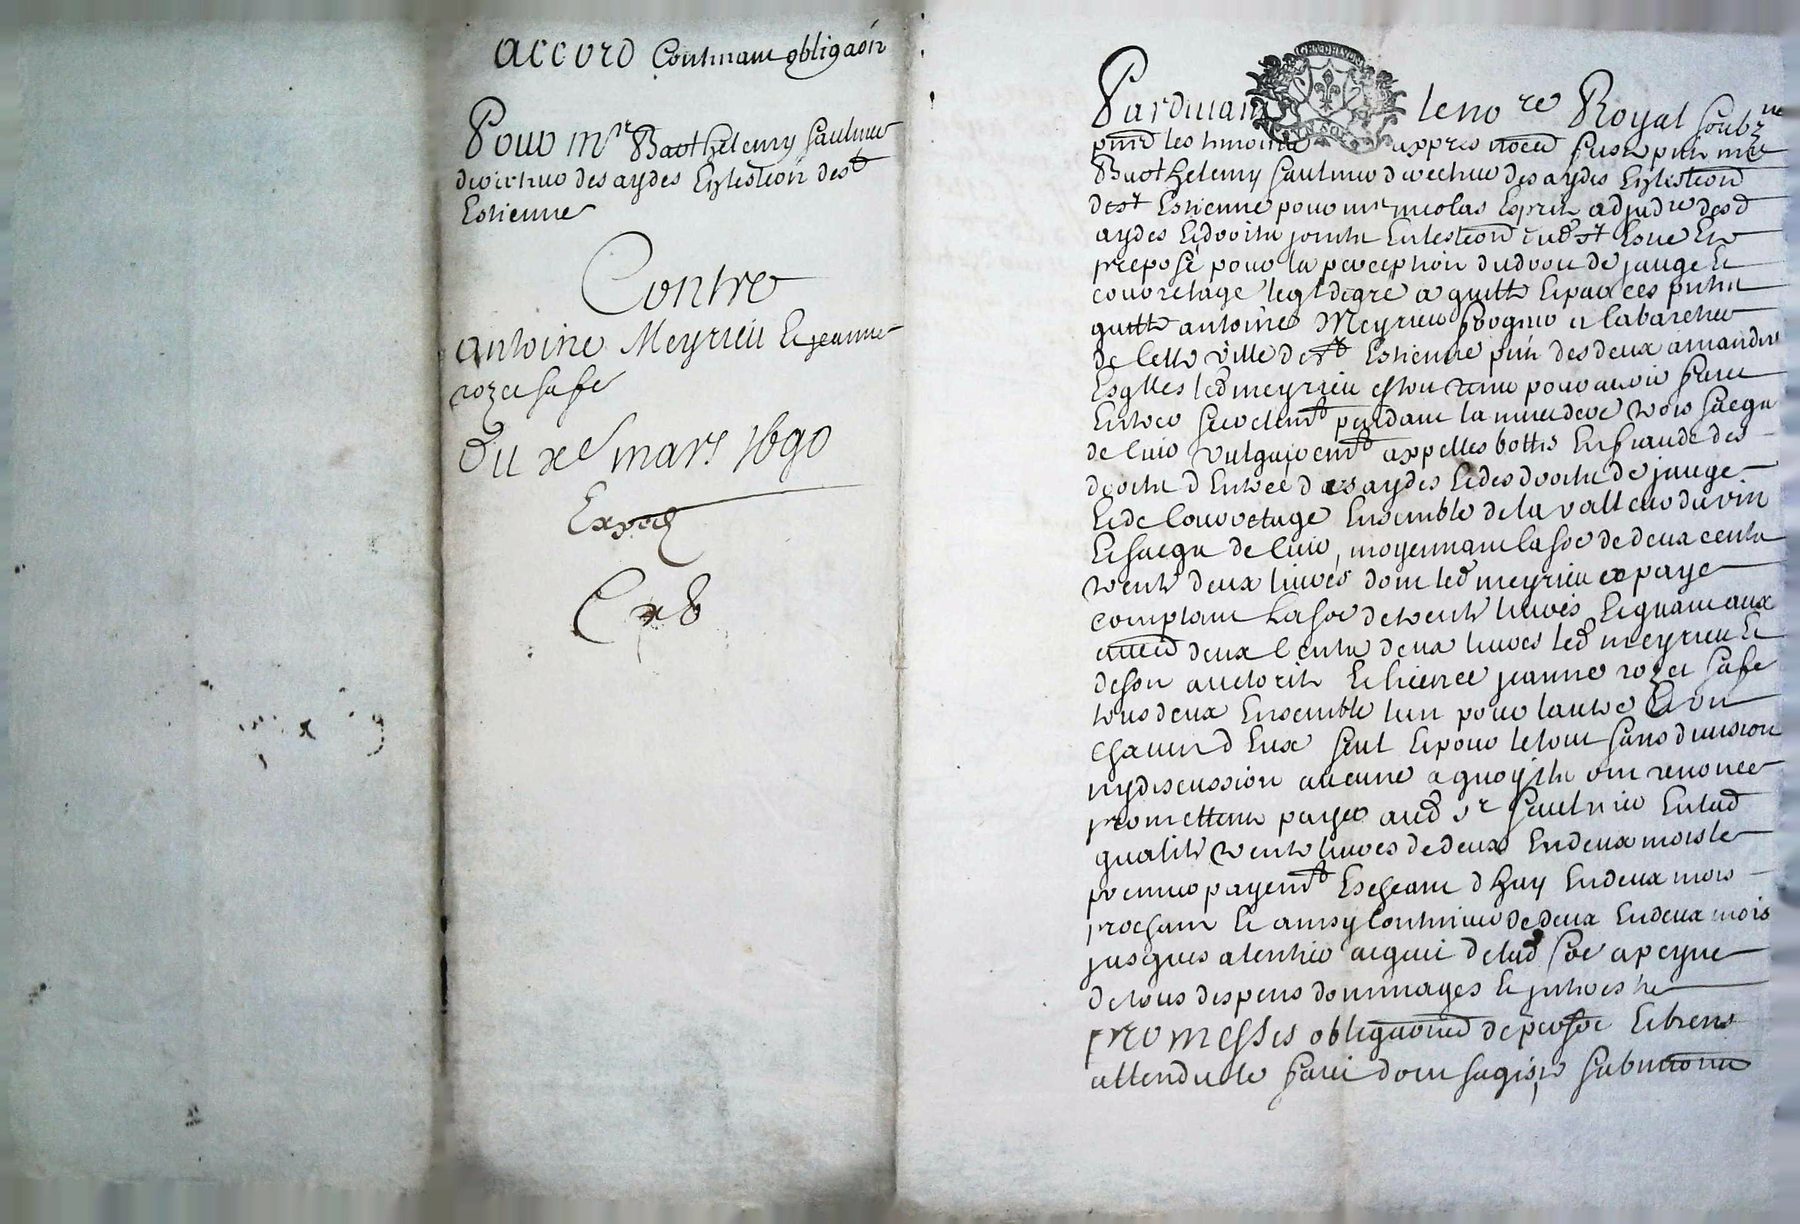 accord Contenant obligaon
Pour mr Barthelemy Saulnier
directeur des aydes Eslection de st
Estienne
Contre
antoine Meyrieu Et jeanne
rozet sa fe
Du xe mars 1690
Exped
Pardevant le nore Royal soubzne
GEN DE LYON
pnt les tmoins appres nomes fust pnt mre
Barthelemy Saulnier directeur des aydes Eslection
de st Estienne pour mr nicolas Esprit adjudre des d
aydes Et droits joints Eslection dud st Esne Et
preposé pour la perception du droit de jauge Et
couretage leql de gre a quitté Et par ces pntes
quitte antoine Meyrieu
de cette ville de st Estienne pnt des deux amandes
Esqlles led meyrieu estoit tenu pour avoir faict
Entrer secretemt pendant la nuict trois sacqs
de cuir vulgairemt appelles bottes En fraude des
droits d Entrée des aydes Et des droits de jauge
Et de Couretage Ensemble de la valleur du vin
Et sacqs de Cuir, moyennant la soe de deux cents
trente deux livres dont led meyrieu a payé
comptant la soe de trente livres Et quant aux
deux Cents deux livres led meyrieu Et
de son auctorité Et licence jeanne rozet sa fe
tous deux Ensemble lun pour lautre Et un
chacun d Eux seul Et pour le tout sans division
ny discussion aucune a quoy ils ont renoncé
promettent payer aud sr Saulnier En lad
qualité trente livres de deux En deux mois le
premier payemt Escheant d huy En deux mois
prochain Et ainsy Continuer de deux En deux mois
jusques a lentier acquit de lad soe a peyne
de tous despens dommages Et intherests
promesses obligaons de persoe Et biens
attendu le faict dont sagist, submissions